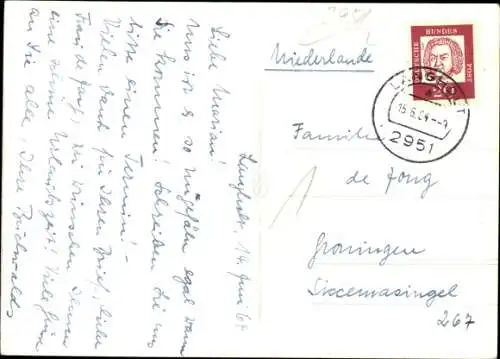 Langholt, 14. Juni 64
Liebe Marian!
Uns ist es so ungefähr egal wann
Sie kommen! Schreiben Sie uns
bitte einen Termin! -
Vielen Dank für Ihren Brief, liebe
Frau de Jong! Wir wünschen Ihnen
eine schöne Urlaubszeit! Viele Grüße
an Sie alle, Ihre Buchwalds
2951
Niederlande
DEUTSCHE BUNDESPOST
20
LANGHOLT
15.6.64.--9
2951
Familie
de Jong
Groningen
Siccemasingel
267